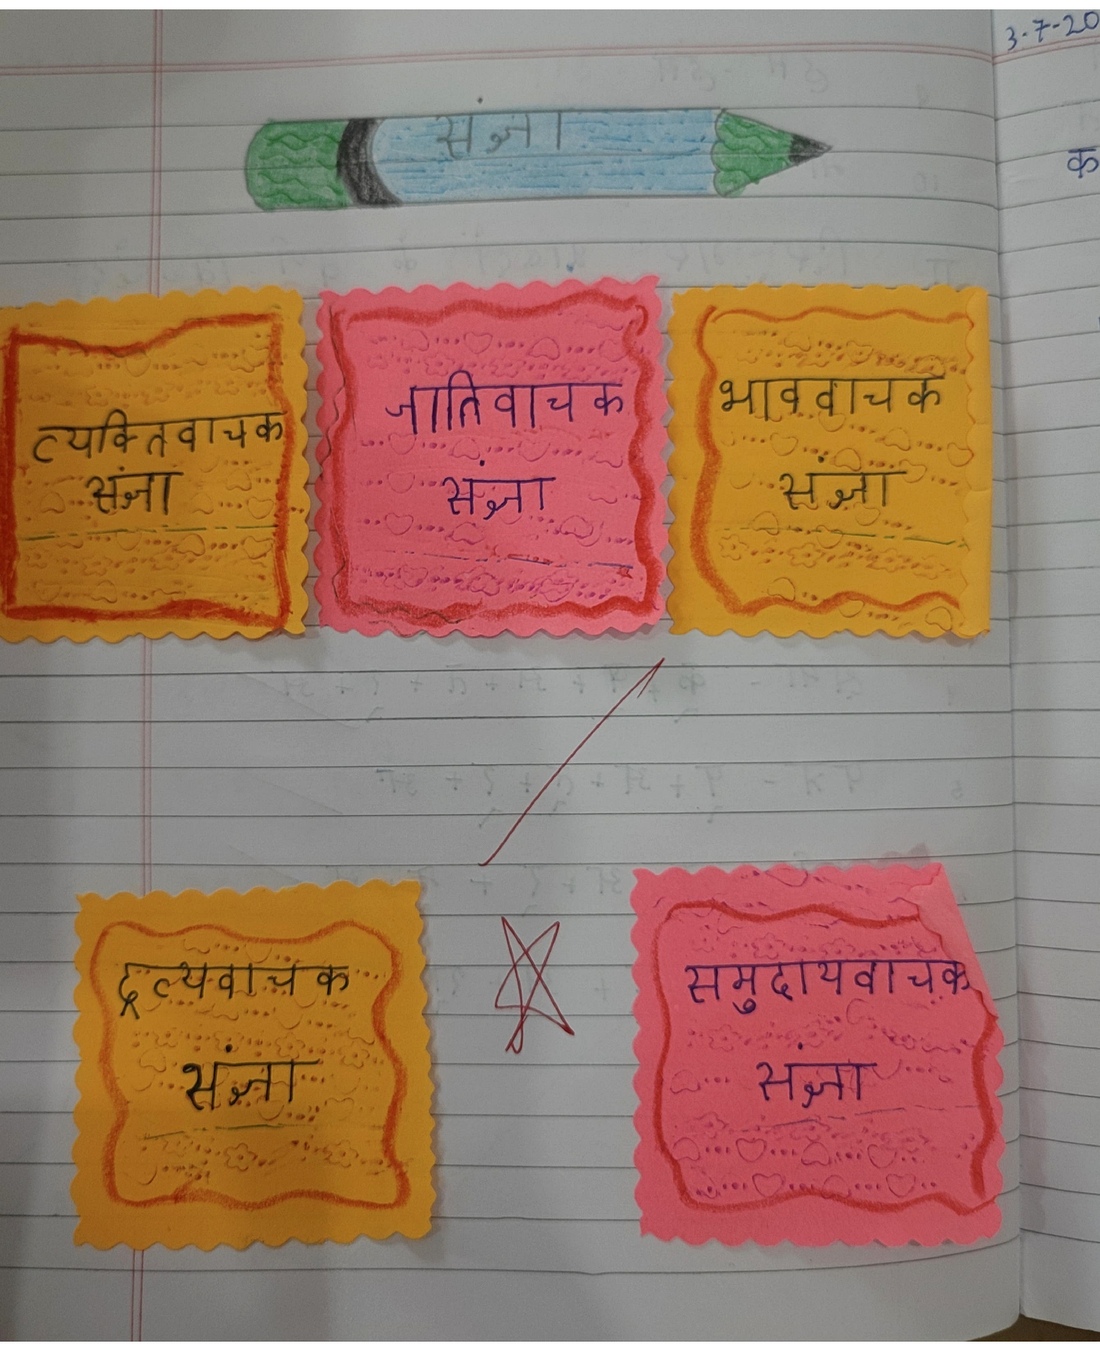 3-7-20
संज्ञा
क
व्यक्तिवाचक
संज्ञा
जातिवाचक
संज्ञा
भाववाचक
संज्ञा
द्रव्यवाचक
संज्ञा
समुदायवाचक
संज्ञा